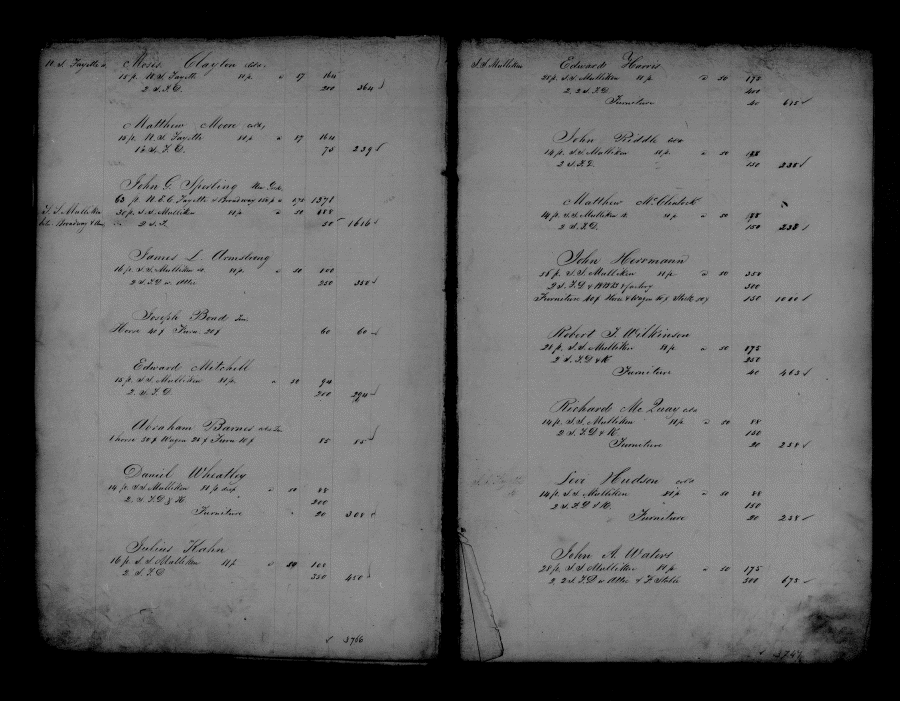 N. S. Fayette
Moses Clayton
15 p. N. S. Fayette 11 p a 17 164
2 S. F. D. 200 364
Matthew Moore
15 p. N. S. Fayette 11 p a 17 164
S. F. D. 75 239
John G. Sperling
63 p N. E. C. Fayette & Broadway 1371
S. S. Mulliken
30 p. S. S. Mulliken 11 p a 50 188
Broadway &
2 S. F. 50 1616
James L. Armstrong
16 p. S. S. Mulliken 11 p a 50 100
2 S. F. D. 250 350
Joseph Bond
Horse 40 Furn. 20 60 60
Edward Mitchell
15 p. S. S. Mulliken 11 p. a 50 94
2 S. F. D 200 294
Abraham Barnes
1 horse 50 Wagon 25 Furn 10 85 85
Daniel Wheatley
14 p. S. S. Mulliken 11 p a 50 88
2 S. F. D & K. 200
Furniture 20 308
Julius Hahn
16 p. S. S. Mulliken 11 p a 50 100
2 S. F. D 350 450
3766
S. S. Mulliken
Edward Harris
28 p. S. S. Mulliken 11 p a 50 175
2. 2 S. F. D 400
Furniture 40 615
John Riddle
14 p. S. S. Mulliken 11 p. a 50 88
2 S. F. D. 150 238
Matthew McClintock
14 p. S. S. Mulliken 11 p a 50 88
2 S. F. D. 150 238
John Herrmann
56 p. S. S. Mulliken 11 p a 50 350
2 S. F. D & 500
Furniture 40 Horse & Wagon Stock 150 1000
Robert J. Wilkinson
28 p. S. S. Mulliken 11 p a 50 175
2 S. F. D & K 250
Furniture 40 465
Richard McQuay
14 p. S. S. Mulliken 11 p a 50 88
2 S. F. D & K. 150
Furniture 20 258
Levi Hudson
14 p. S. S. Mulliken 11 p a 50 88
2 S. F. D & K. 150
Furniture 20 258
John A. Waters
28 p. S. S. Mulliken 11 p a 50 175
2, 2 S. F. D & F. Stable 500 675
3747